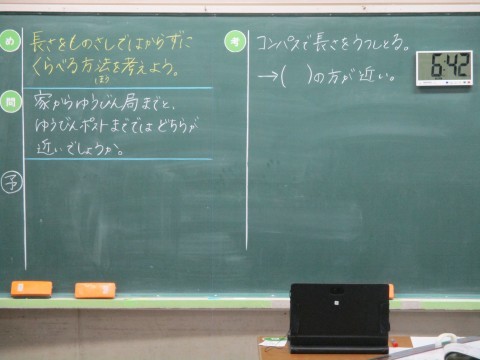 め
長さをものさしではからずに
くらべる方法を考えよう。
ほう
問
家からゆうびん局までと、
ゆうびんポストまでではどちらが
近いでしょうか。
予
考
コンパスで長さをうつしとる。
→(　　)の方が近い。
6:42